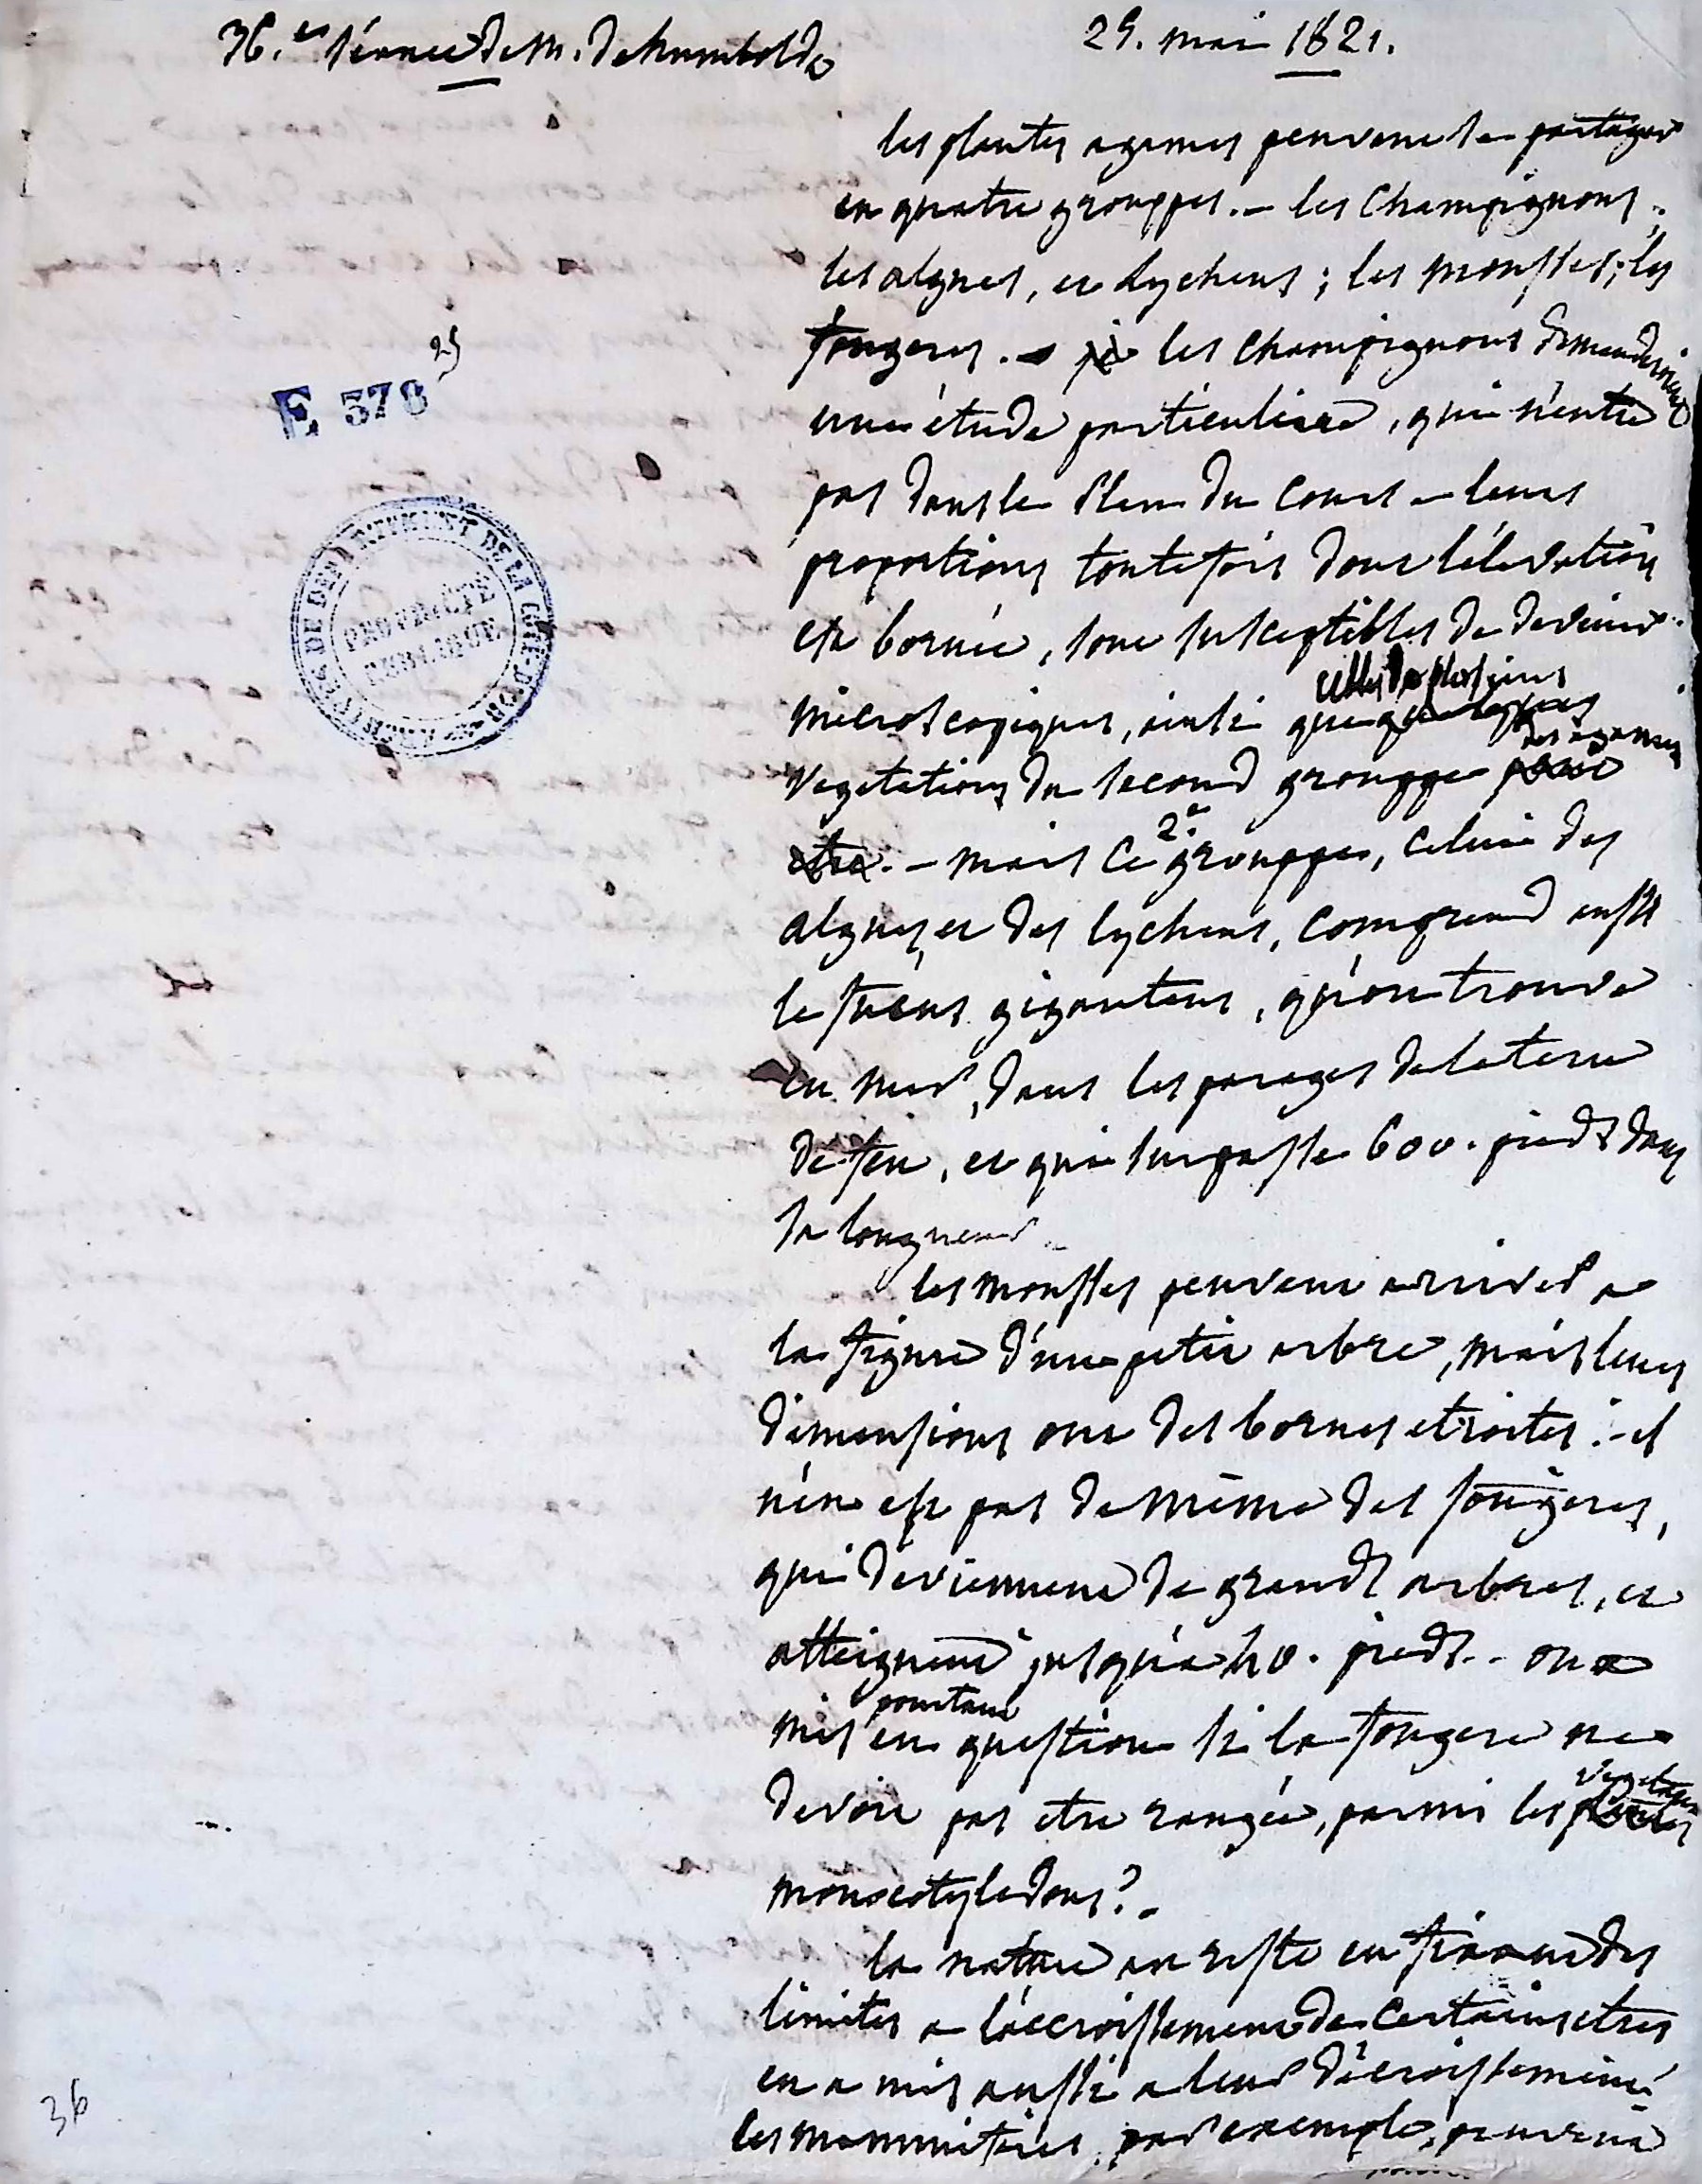 36.e séance de M. de humboldt
29. mai 1821.
les plantes agames peuvent se partager
en quatre grouppes. - les Champignons ;
les algues, et lychens ; les mousses ; les
fougeres. - les champignons demanderoient
une étude particuliere, qui n'entre
pas dans le plan du cours - leurs
proportions toutefois dont l'élevation
est bornée, sont susceptibles de devenir
celles de plusieurs
microscopiques, ainsi que quelques
des agames
vegetations du second grouppe pour
etre. - mais ce 2e. grouppe, celui des
algues, et des lychens, comprend aussi
le fucus giganteus, qu'on trouve
en mer, dans les parages de la terre
de feu, et qui surpasse 600. pieds dans
sa longueur.
les mousses peuvent arriver a
la figure d'un petit arbre, mais leurs
dimensions ont des bornes etroites : - il
n'en est pas de même des fougeres,
qui deviennent de grands arbres, et
atteignent jusqu'a 40. pieds. - on a
pourtant
mis en question si la fougere ne
vegetaux
devoit pas etre rangée, parmi les plantes
monocotyledons ? -
la nature au reste en fixant des
limites a l'accroissement de certains etres
en a mis aussi a leur décroissement
les mammiferes par exemple, peuvent
E 378 25
ARCHIVES DE DEPARTEMENT DE LA COTE-D'OR
PROPRIÉTÉ
PUBLIQUE
36